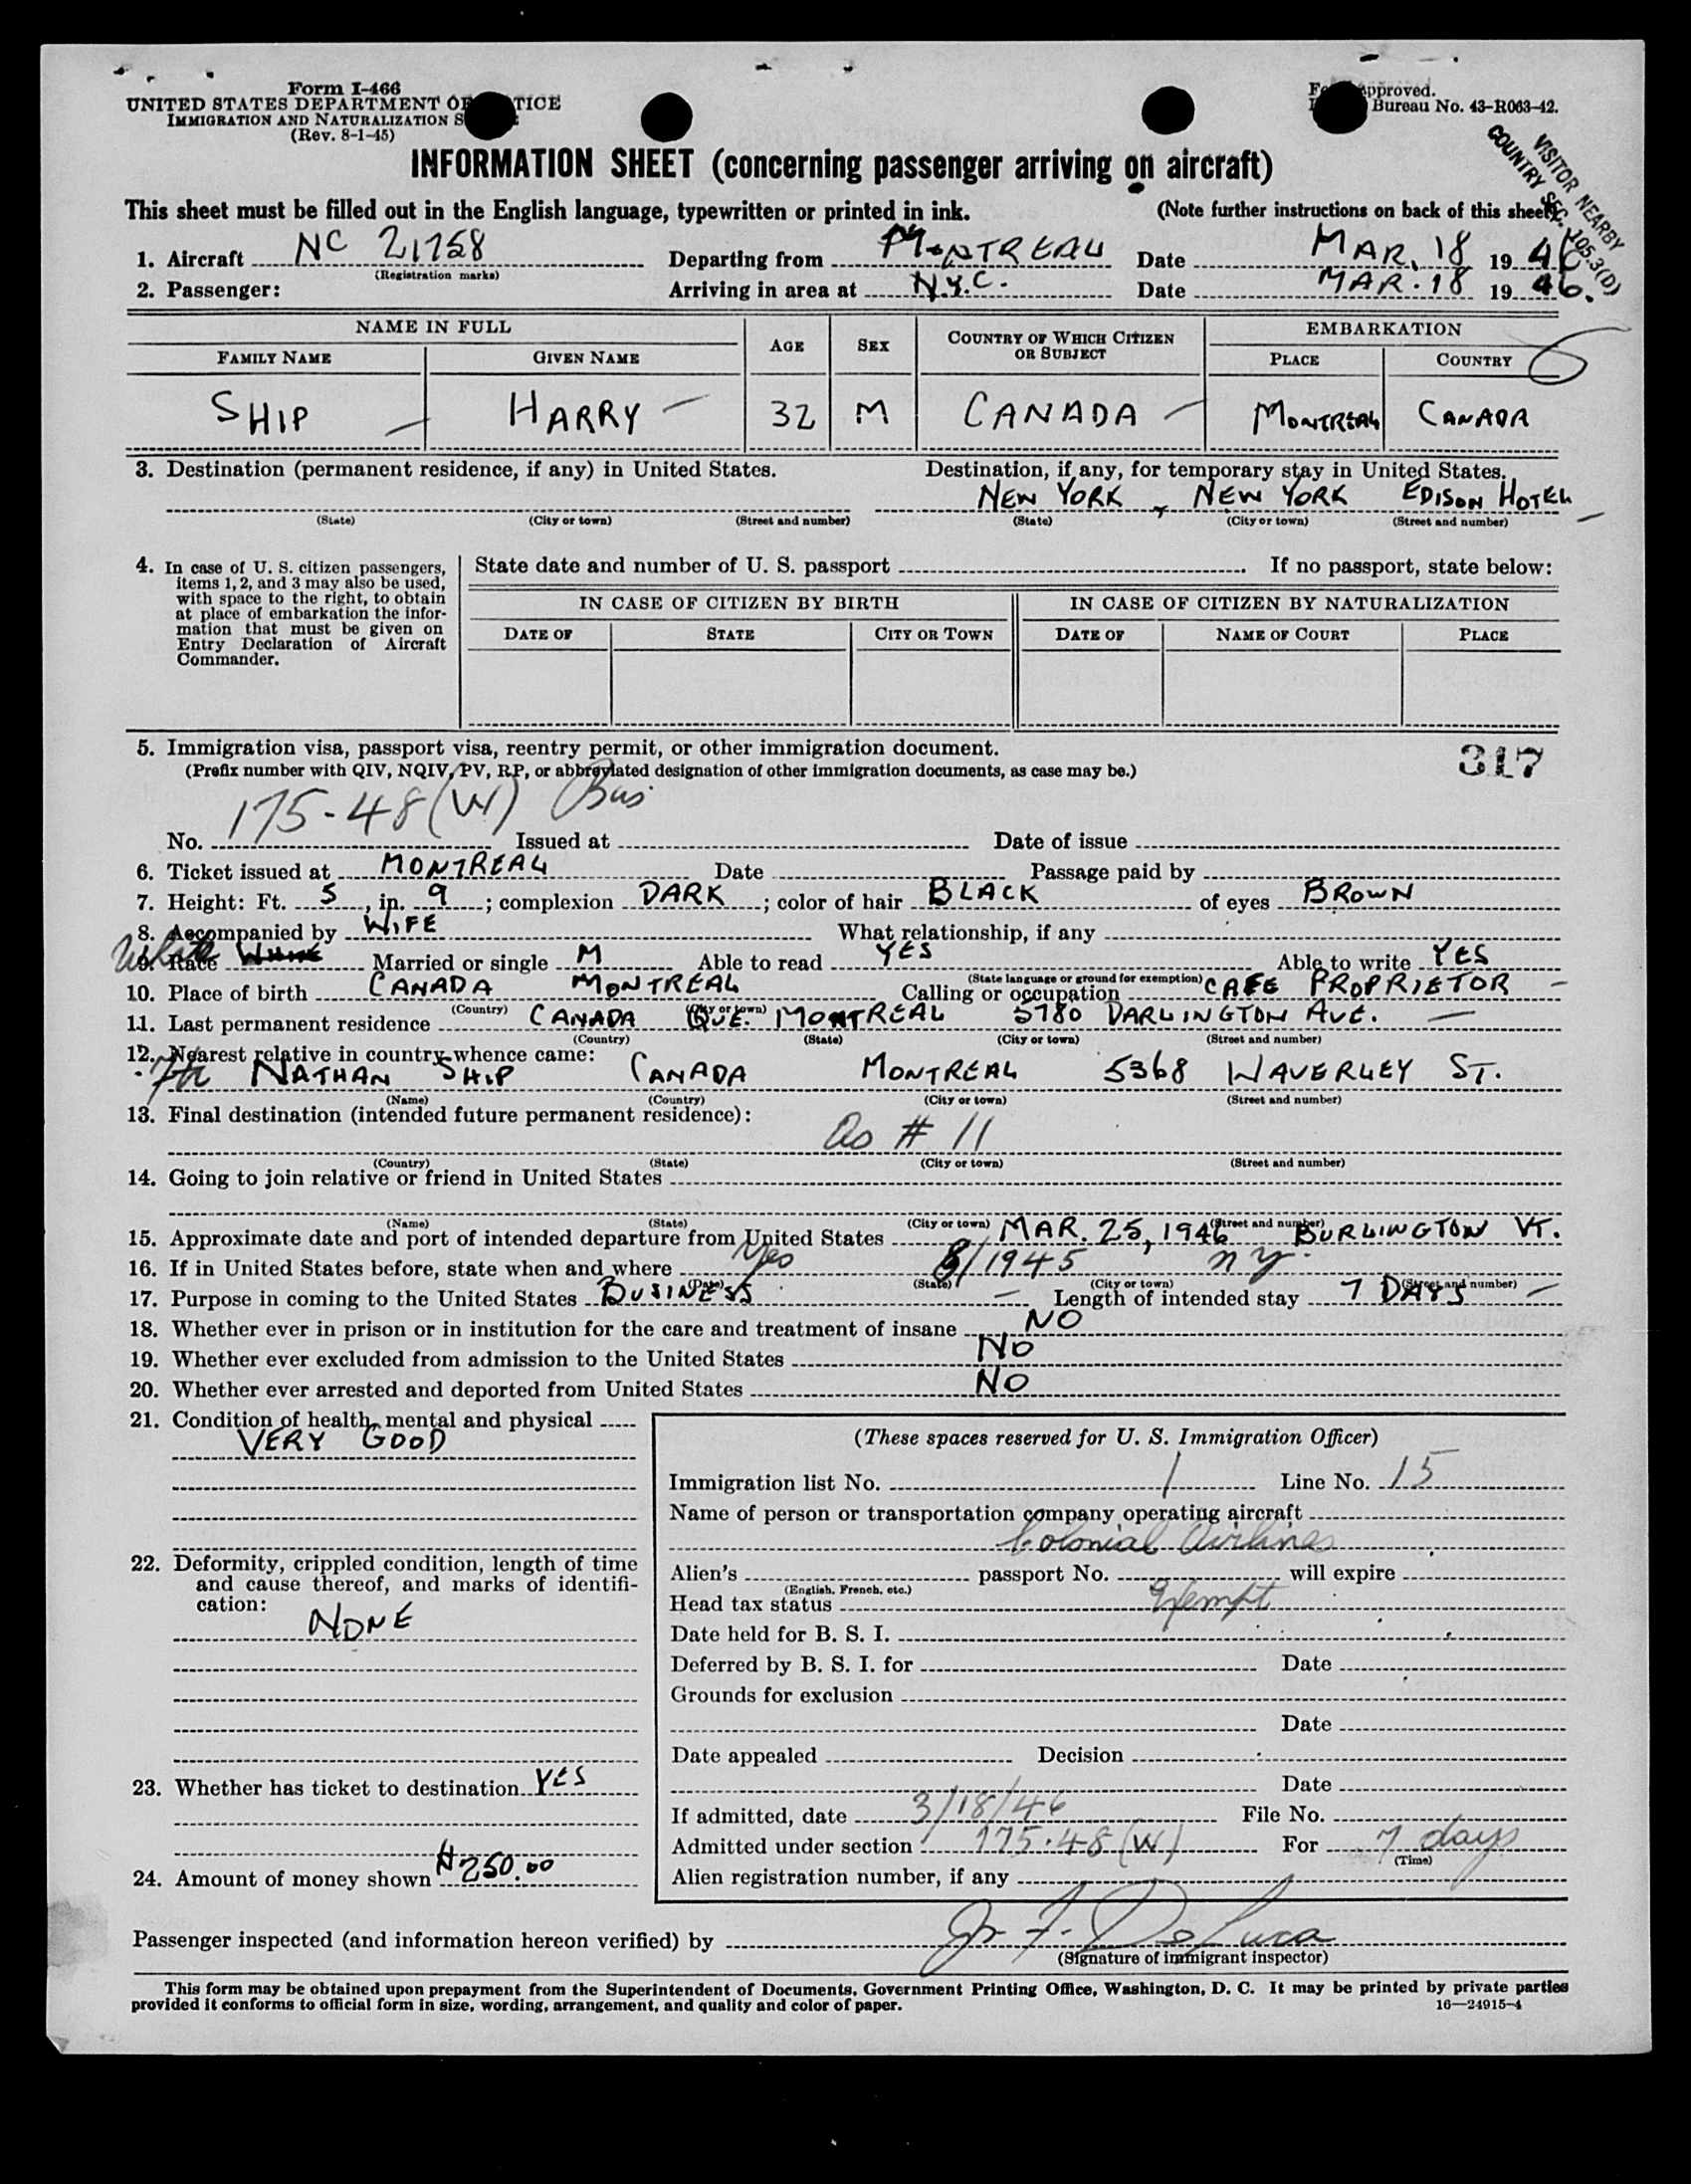 Form I-466
UNITED STATES DEPARTMENT OF TICE
IMMIGRATION AND NATURALIZATION S
(Rev. 8-1-45)
Approved.
Bureau No. 43-R063-42.
VISITOR NEARBY
COUNTRY SEC. 105.3(D)
INFORMATION SHEET (concerning passenger arriving on aircraft)
This sheet must be filled out in the English language, typewritten or printed in ink. (Note further instructions on back of this sheet)
1. Aircraft NC 21758 Departing from MONTREAL Date MAR. 18 1946
(Registration marks)
2. Passenger: Arriving in area at N.Y.C. Date MAR. 18 1946.
NAME IN FULL AGE SEX COUNTRY OF WHICH CITIZEN OR SUBJECT EMBARKATION
FAMILY NAME GIVEN NAME PLACE COUNTRY
6
SHIP HARRY 32 M CANADA MONTREAL CANADA
3. Destination (permanent residence, if any) in United States. Destination, if any, for temporary stay in United States.
NEW YORK, NEW YORK EDISON HOTEL
(State) (City or town) (Street and number) (State) (City or town) (Street and number)
4. In case of U. S. citizen passengers, items 1, 2, and 3 may also be used, with space to the right, to obtain at place of embarkation the information that must be given on Entry Declaration of Aircraft Commander.
State date and number of U. S. passport . If no passport, state below:
IN CASE OF CITIZEN BY BIRTH IN CASE OF CITIZEN BY NATURALIZATION
DATE OF STATE CITY OR TOWN DATE OF NAME OF COURT PLACE
5. Immigration visa, passport visa, reentry permit, or other immigration document. 317
(Prefix number with QIV, NQIV, PV, RP, or abbreviated designation of other immigration documents, as case may be.)
No. 175-48(W) Bus Issued at Date of issue
6. Ticket issued at MONTREAL Date Passage paid by
7. Height: Ft. 5, in. 9; complexion DARK; color of hair BLACK of eyes BROWN
8. Accompanied by WIFE What relationship, if any
9. Race White Married or single M Able to read YES Able to write YES
(State language or ground for exemption)
10. Place of birth CANADA MONTREAL Calling or occupation CAFE PROPRIETOR
(Country) (City or town)
11. Last permanent residence CANADA QUE. MONTREAL 5780 DARLINGTON AVE.
(Country) (State) (City or town) (Street and number)
12. Nearest relative in country whence came:
NATHAN SHIP CANADA MONTREAL 5368 WAVERLEY ST.
(Name) (Country) (City or town) (Street and number)
13. Final destination (intended future permanent residence):
As # 11
(Country) (State) (City or town) (Street and number)
14. Going to join relative or friend in United States
(Name) (State) (City or town) (Street and number)
15. Approximate date and port of intended departure from United States MAR. 25, 1946 BURLINGTON VT.
16. If in United States before, state when and where Yes 8/1945 N Y.
(Date) (State) (City or town) (Street and number)
17. Purpose in coming to the United States BUSINESS Length of intended stay 7 DAYS
18. Whether ever in prison or in institution for the care and treatment of insane NO
19. Whether ever excluded from admission to the United States NO
20. Whether ever arrested and deported from United States NO
21. Condition of health, mental and physical
VERY GOOD
22. Deformity, crippled condition, length of time
and cause thereof, and marks of identifi-
cation:
NONE
23. Whether has ticket to destination YES
24. Amount of money shown $250.00
(These spaces reserved for U. S. Immigration Officer)
Immigration list No. 1 Line No. 15
Name of person or transportation company operating aircraft
Colonial Airlines
Alien's passport No. will expire
(English, French, etc.)
Head tax status Exempt
Date held for B. S. I.
Deferred by B. S. I. for Date
Grounds for exclusion
Date
Date appealed Decision
Date
If admitted, date 3/18/46 File No.
Admitted under section 175.48(W) For 7 days
(Time)
Alien registration number, if any
Passenger inspected (and information hereon verified) by F. DeLuca
(Signature of immigrant inspector)
This form may be obtained upon prepayment from the Superintendent of Documents, Government Printing Office, Washington, D. C. It may be printed by private parties
provided it conforms to official form in size, wording, arrangement, and quality and color of paper. 16—24915-4